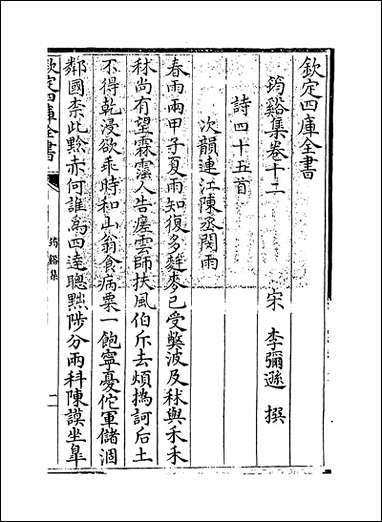 欽定四庫全書
筠谿集卷十二
宋　李彌遜　撰
詩四十五首
次韻連江陳丞閔雨
春雨兩甲子夏雨知復多麰麥已受弊波及秫與禾禾
秫尚有望霖霪人告瘥雲師扶風伯斥去煩撝訶后土
不得乾浸欲乖時和山翁食病粟一飽寧憂佗軍儲涸
鄰國柰此黔赤何誰為四達聰黜陟分兩科陳謨坐臯
欽定四庫全書
筠谿集